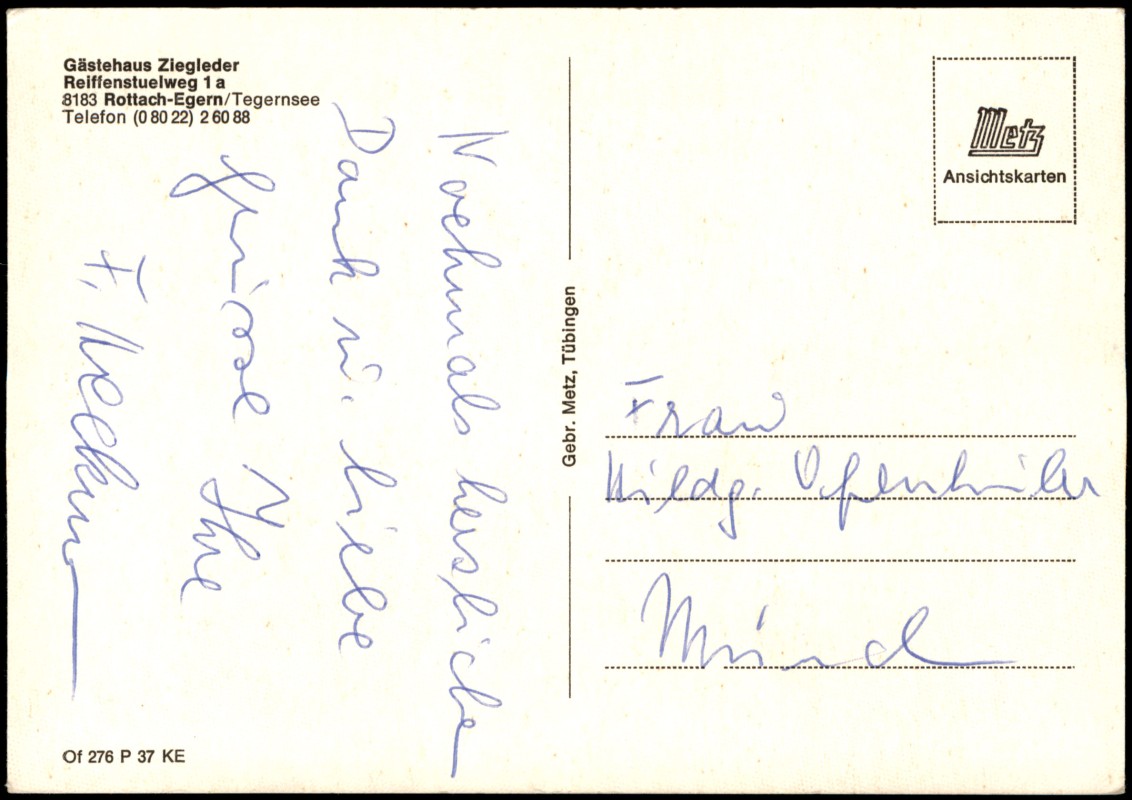 Gästehaus Ziegleder
Reiffenstuelweg 1 a
8183 Rottach-Egern/Tegernsee
Telefon (0 80 22) 2 60 88
Nochmals herzlichen
Dank u. liebe
Grüsse Ihre
F.
Of 276 P 37 KE
Gebr. Metz, Tübingen
Metz
Ansichtskarten
Frau
Hildg.